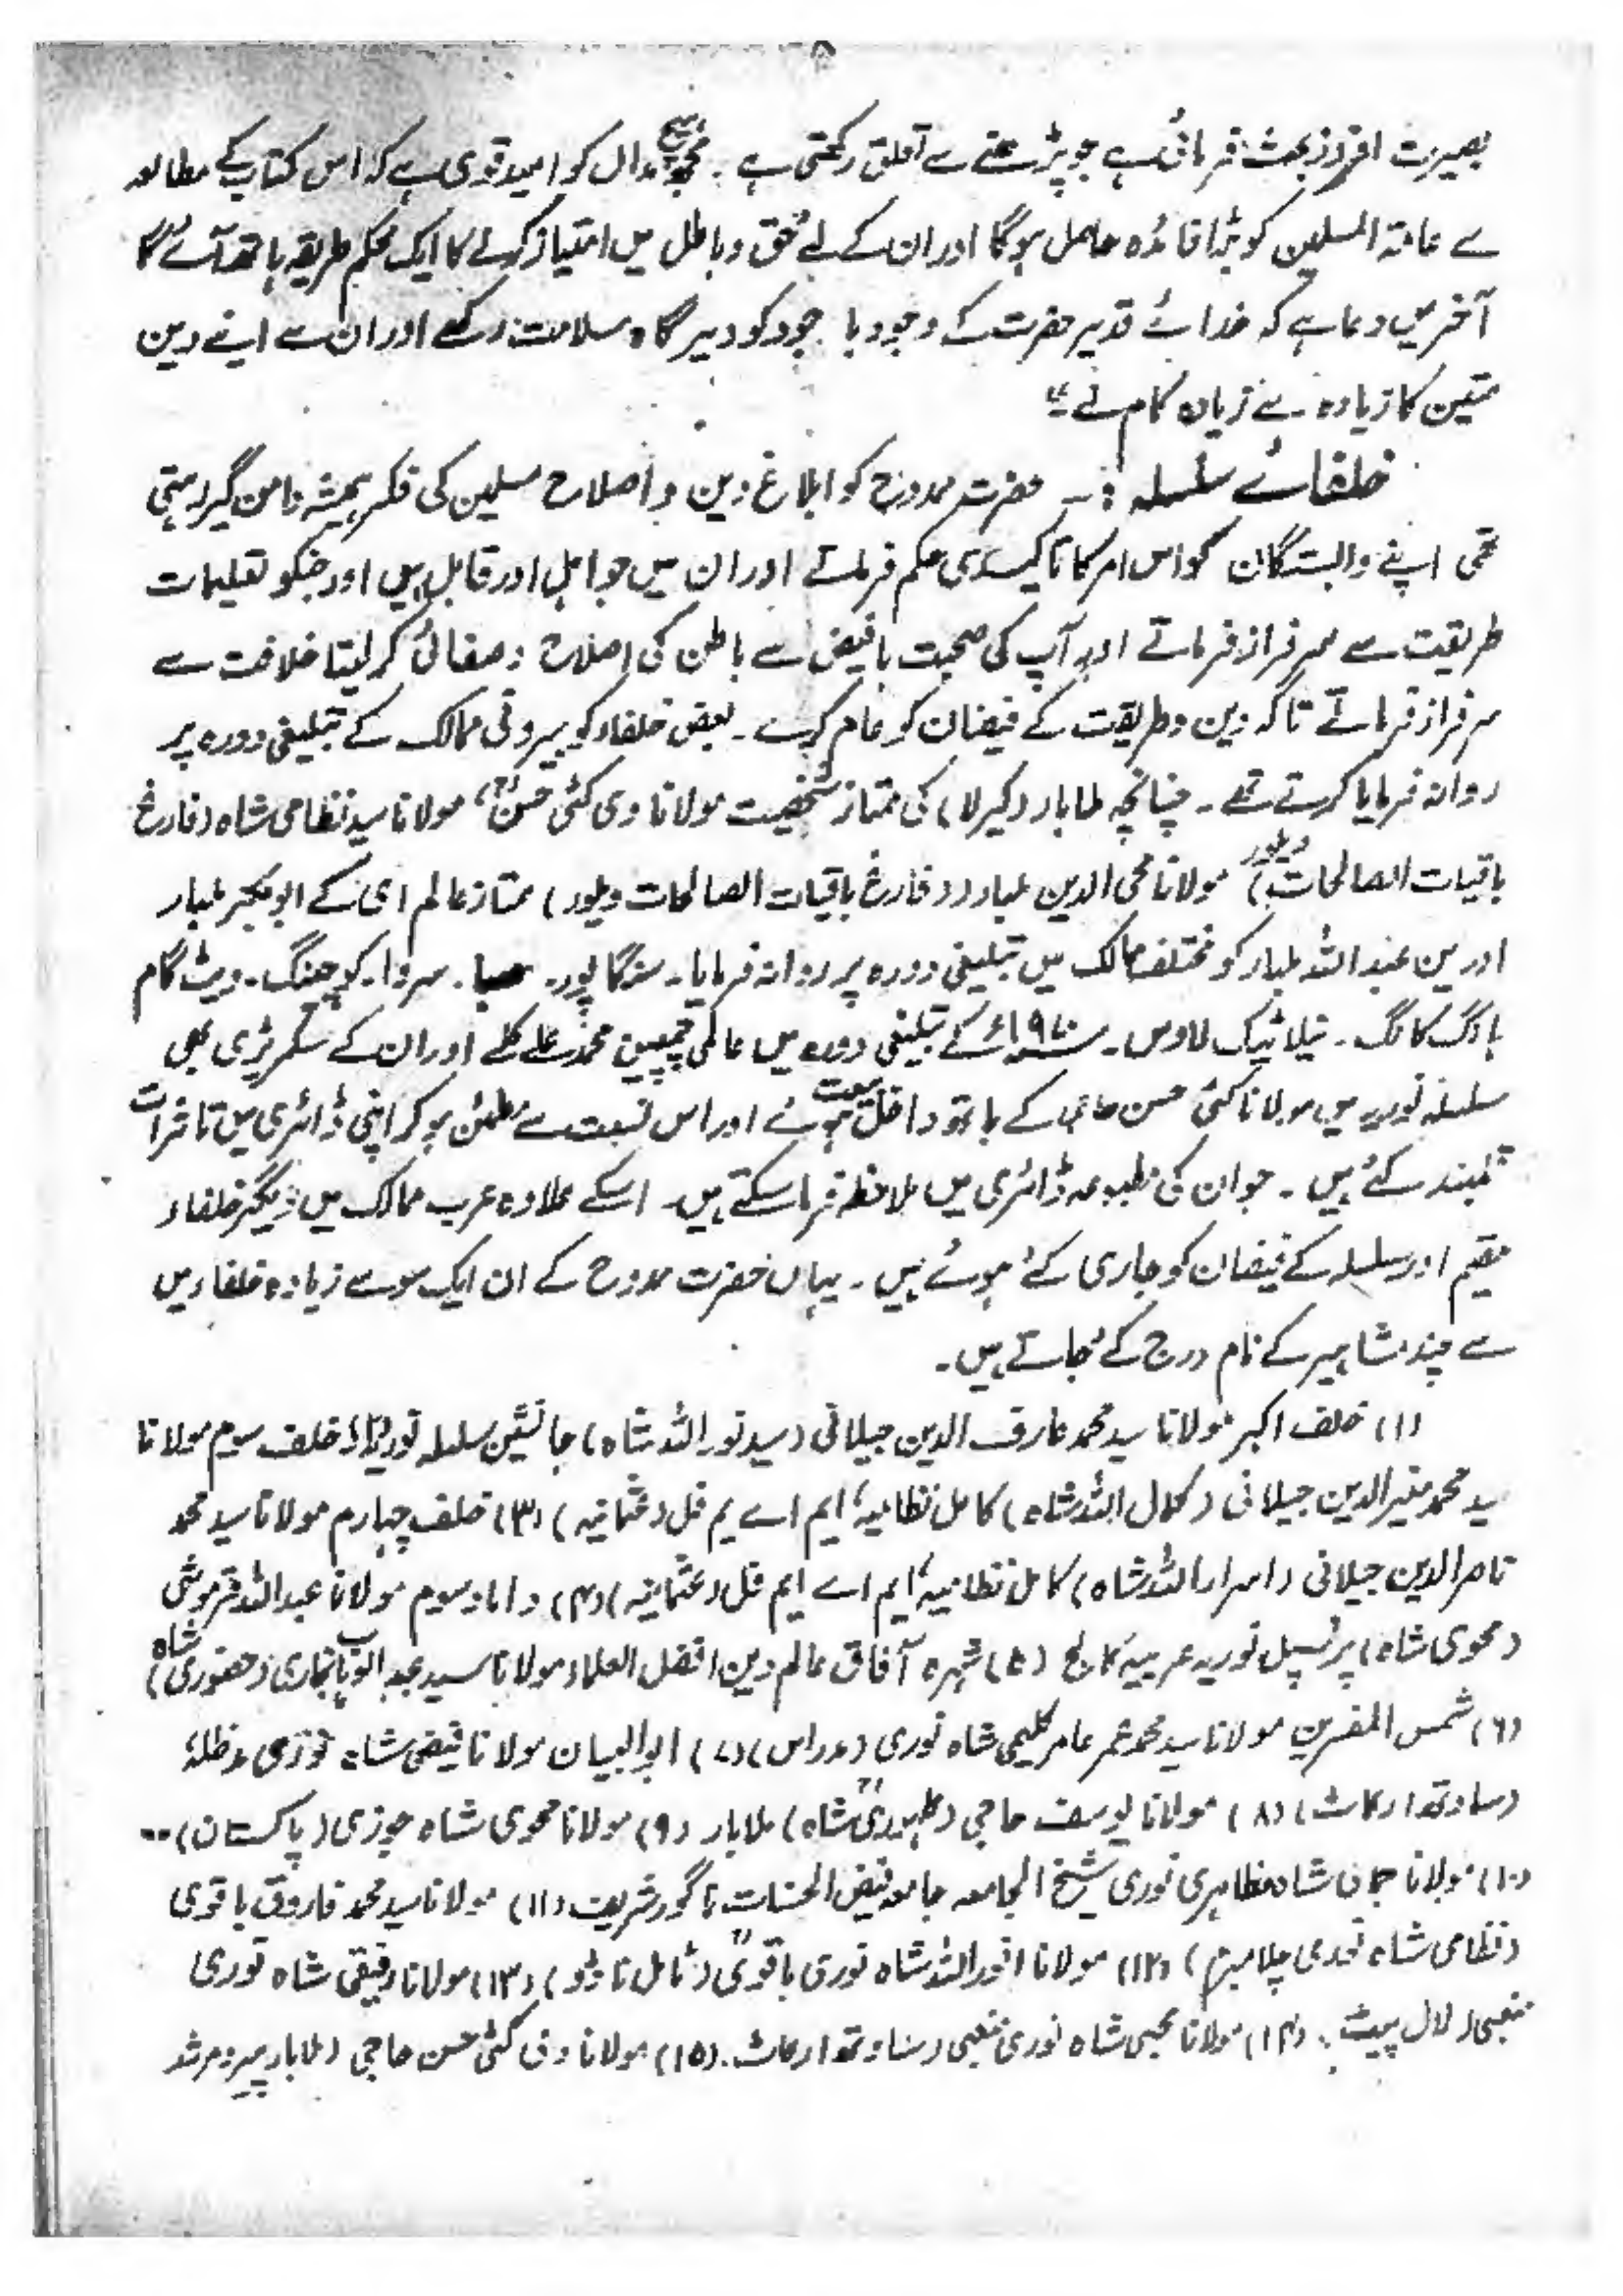 ۸
بصیرت افروز بحث فرمائی ہے جو پڑھنے سے تعلق رکھتی ہے۔ مجھ ہیچمداں کو امید قوی ہے کہ اس کتاب کے مطالعہ
سے عامۃ المسلمین کو بڑا فائدہ حاصل ہوگا اور ان کے لئے حق و باطل میں امتیاز کرنے کا ایک محکم طریقہ ہاتھ آئے گا
آخر میں دعا ہے کہ خدائے قدیر حضرت کے وجود با جود کو دیر گاہ سلامت رکھے اور ان سے اپنے دین
متین کا زیادہ سے زیادہ کام لے"
خلفائے سلسلہ :۔ حضرت ممدوح کو ابلاغ دین و اصلاح مسلمین کی فکر ہمیشہ دامن گیر رہتی
تھی اپنے وابستگان کو اس امر کا تاکیدی حکم فرماتے اور ان میں جو اہل اور قابل ہیں اور جنکو تعلیمات
طریقت سے سرفراز فرماتے اور آپ کی صحبت بافیض سے باطن کی اصلاح و صفائی کر لیتا خلافت سے
سرفراز فرماتے تاکہ دین و طریقت کے فیضان کو عام کرے۔ بعض خلفاء کو بیرونی ممالک کے تبلیغی دورہ پر
روانہ فرمایا کرتے تھے۔ چنانچہ ملابار (کیرلا) کی ممتاز شخصیت مولانا وی کٹی حسنؒ، مولانا سید نظامی شاہ (فارغ
باقیات الصالحات ویلور) مولانا محی الدین ملبار (فارغ باقیات الصالحات ویلور) ممتاز عالم ای کے ابوبکر ملبار
اور ین عبداللہ ملبار کو مختلف ممالک میں تبلیغی دورہ پر روانہ فرمایا۔ سنگاپور۔ صبا۔ سروا۔ کوچنگ۔ ویٹ نام
ہانگ کانگ۔ لاوس۔ کے تبلیغی دورہ میں عالمی چمپین محمد علی کلے اور ان کے سکریٹری بھی
سلسلہ نوریہ میں مولانا کٹی حسن حاجی کے ہاتھ داخل بیعت ہوئے اور اس نسبت سے مطمئن ہو کر اپنی ڈائری میں تاثرات
قلمبند کئے ہیں۔ جو ان کی مطبوعہ ڈائری میں ملاحظہ فرما سکتے ہیں۔ اسکے علاوہ عرب ممالک میں دیگر خلفاء
مقیم اور سلسلہ کے فیضان کو جاری کئے ہوئے ہیں۔ یہاں حضرت ممدوح کے ان ایک سو سے زیادہ خلفاء میں
سے چند مشاہیر کے نام درج کئے جاتے ہیں۔
(۱) خلف اکبر مولانا سید محمد عارف الدین جیلانی (سید نور اللہ شاہ) جانشین سلسلہ نوریہ (۲) خلف سوم مولانا
سید محمد منیر الدین جیلانی (کمال اللہ شاہ) کامل نظامیہ، ایم اے یم فل (عثمانیہ) (۳) خلف چہارم مولانا سید محمد
ناصر الدین جیلانی (اسرار اللہ شاہ) کامل نظامیہ، ایم اے ایم فل (عثمانیہ) (۴) داماد سوم مولانا عبداللہ قرموشی
(محوی شاہ) پرنسپل نوریہ عربیہ کالج (۵) شہرہ آفاق عالم دین افضل العلماء مولانا سید عبدالوہاب بخاری (حضوری شاہ)
(۶) شمس المفسرین مولانا سید محمد عمر عامر کلیمی شاہ نوری (مدراس) (۷) ابوالبیان مولانا فیضی شاہ نوری مدظلہٗ
(ساوتھ ارکاٹ) (۸) مولانا یوسف حاجی شاہ) ملابار (۹) مولانا محوی شاہ (پاکستان)۔۔
(۱۰) مولانا جمالی شاہ مظاہری نوری شیخ الجامعہ جامعہ فیض الحسنات ناگور شریف (۱۱) مولانا سید محمد فاروق باقوی
(نظامی شاہ نوری (۱۲) مولانا انور اللہ شاہ نوری باقویؒ (ٹامل ناڈو) (۱۳) مولانا رفیقی شاہ نوری
منبعی (لال پیٹ) (۱۴) مولانا محبی شاہ نوری منبعی (ساوتھ ارکاٹ۔ (۱۵) مولانا وی کٹی حسن حاجی (ملابار پیر و مرشد